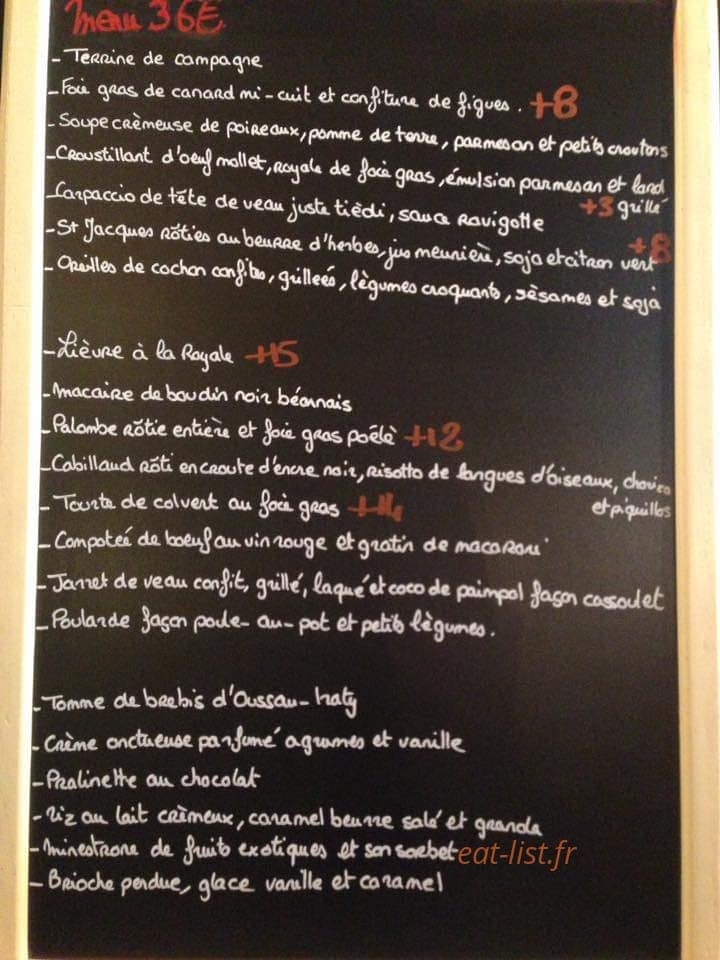 Menu 36€
- Terrine de campagne
- Foie gras de canard mi-cuit et confiture de figues. +8
- Soupe crèmeuse de poireaux, pomme de terre, parmesan et petits croutons
- Croustillant d'oeuf mollet, royale de foie gras, émulsion parmesan et lard
+3 grillé
- Carpaccio de tête de veau juste tièdi, sauce ravigotte
- St Jacques rôties au beurre d'herbes, jus meunière, soja et citron vert +8
- Oreilles de cochon confites, grilleés, lègumes croquants, sèsames et soja
- Lièvre à la Royale +15
- Macaire de boudin noir béarnais
- Palombe rôtie entière et foie gras poêlè +12
- Cabillaud rôti en croute d'encre noir, risotto de langues d'oiseaux, chorizo
et piquillos
- Tourte de colvert au foie gras +14
- Compoteé de boeuf au vin rouge et gratin de macaroni
- Jarret de veau confit, grillé, laqué et coco de paimpol façon cassoulet
- Poularde façon poule-au-pot et petits lègumes.
- Tomme de brebis d'Oussau-Iraty
- Crème onctueuse parfumé agrumes et vanille
- Pralinette au chocolat
- Riz au lait crèmeux, caramel beurre salé et granola
- Minestrone de fruits exotiques et son sorbet eat-list.fr
- Brioche perdue, glace vanille et caramel